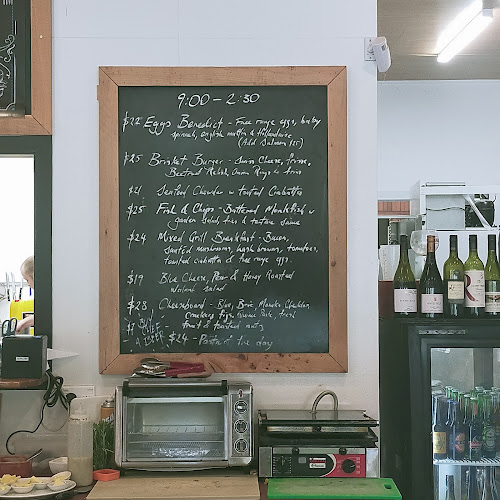 9:00 - 2:30
$22 Eggs Benedict - Free range eggs,
spinach, english muffin & Hollandaise
(Add Salmon $5)
$25 Brisket Burger - Swiss Cheese,
Beetroot Relish, Onion Rings & fries
Seafood Chowder w toasted Ciabatta
$25 Fish & Chips - Battered Monkfish w
garden salad, fries & tartare sauce
$24 Mixed Grill Breakfast - Bacon,
sautéed mushrooms, hash browns, tomatoes,
toasted ciabatta & free range eggs.
$19 Blue Cheese, Pear & Honey Roasted
Walnut salad
$28 Cheeseboard - Blue, Brie,
crackers, figs, fresh
fruit & toasted nuts
$24 - Pasta of the day